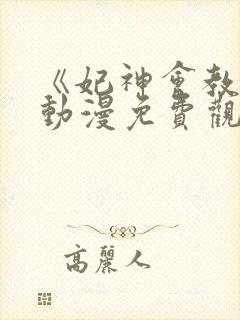 《妃神會教
動漫免費觀
高麗人